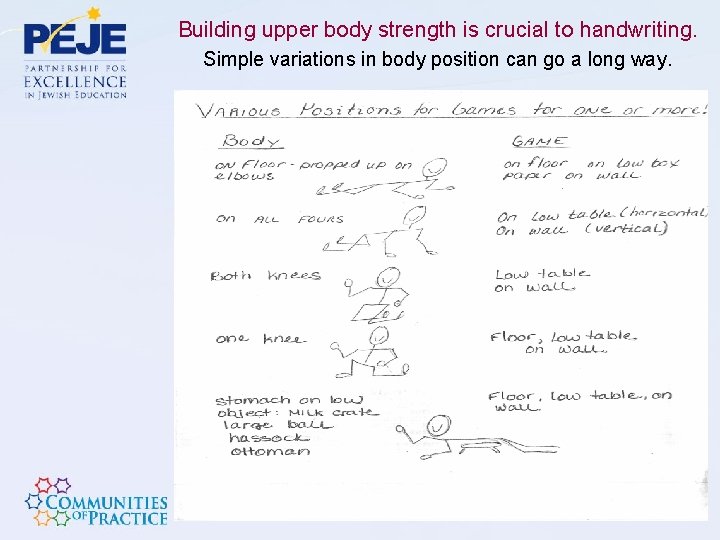 Building upper body strength is crucial to handwriting.
Simple variations in body position can go a long way.
PEJE
PARTNERSHIP FOR
EXCELLENCE
IN JEWISH EDUCATION
VARIOUS Positions for Games for one or more!
Body
GAME
on Floor - propped up on
elbows
on floor on low box
paper on wall
on ALL FOURS
On low table (horizontal)
On wall (vertical)
Both knees
Low table
on wall
one knee
Floor, low table
on wall
stomach on low
object: Milk crate
large ball
hassock
ottoman
Floor, low table, on
wall
COMMUNITIES
OF PRACTICE